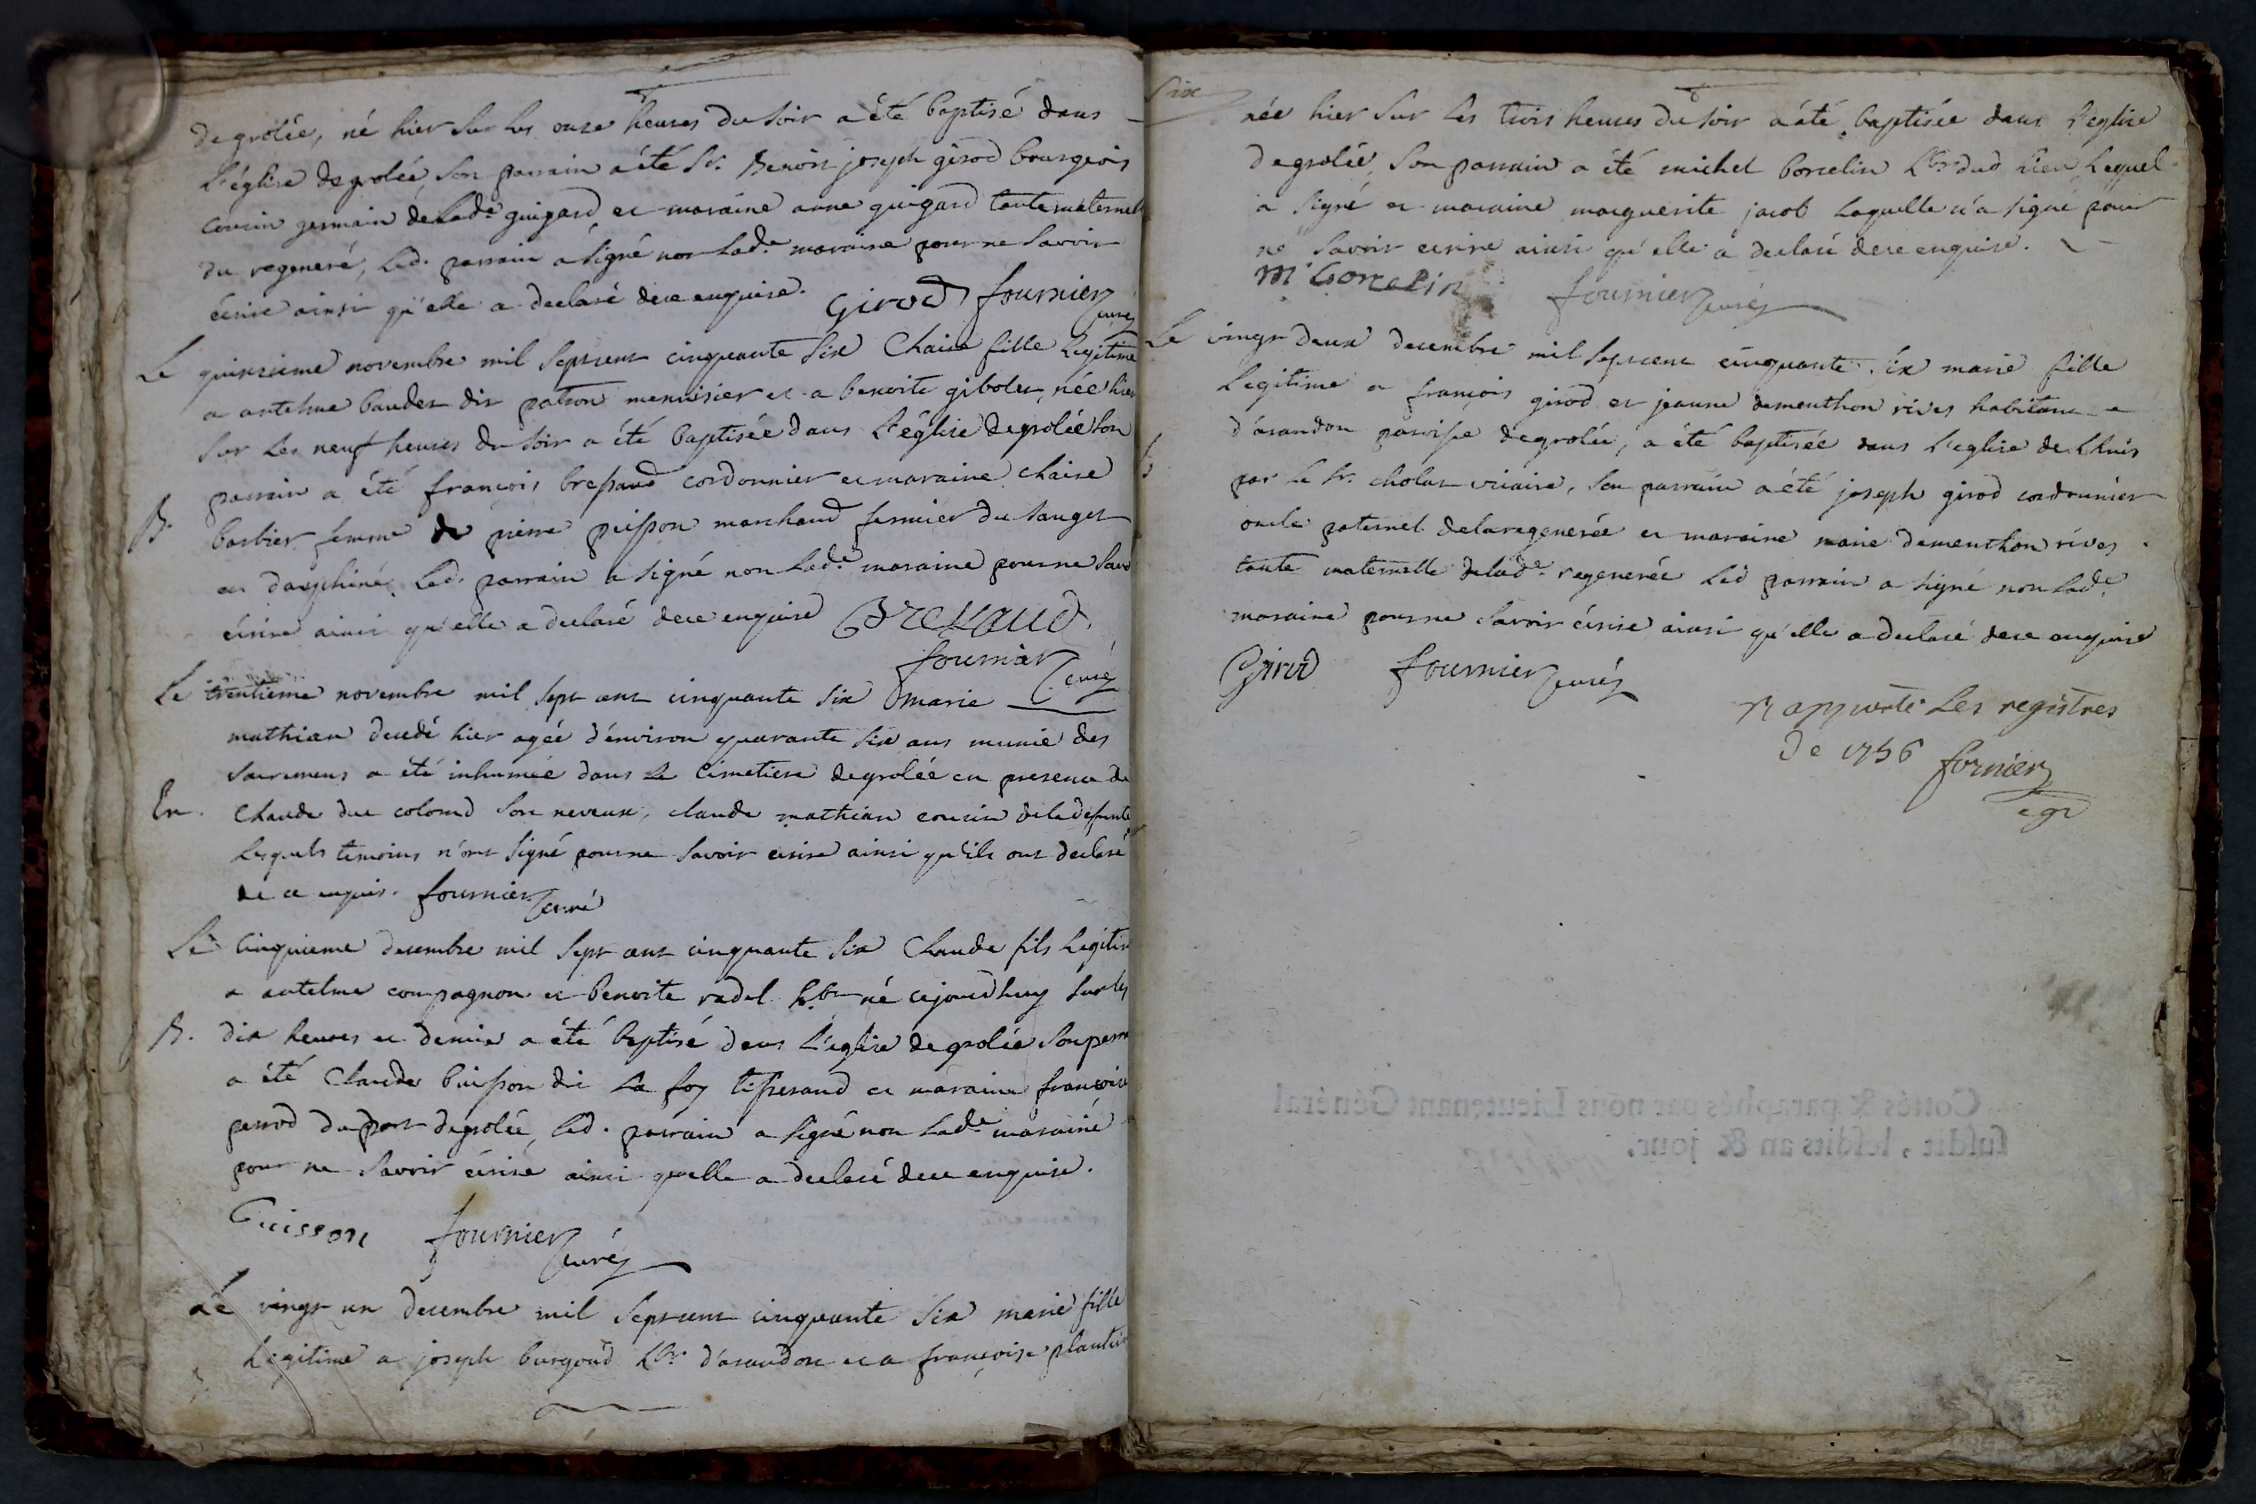 de grolée, né hier sur les onze heures du soir a été baptisé dans
L'église de grolée, son parrain a été Sr. Benoit joseph girod bourgeois
cousin germain de lade. guigard et maraine anne guigard tante maternelle
du regeneré, led. parrain a signé non lade. maraine pour ne savoir
écrire ainsi qu'elle a declaré de ce enquise. Girod fournier curé
Le quinzieme novembre mil sept cent cinquante six Claire fille Legitime
a antelme baudet dit patron menuisier et a benoite gibolet, née hier
sur les neuf heures du soir a été baptisée dans L'église de grolée son
B. parrain a été françois bressaud cordonnier et maraine claire
barbier femme de pierre puisson marchand fermier du sauget
en dauphiné led. parrain a signé non lade. maraine pour ne savoir
écrire ainsi qu'elle a declaré de ce enquise Bressaud.
fournier curé
Le trentieme novembre mil sept cent cinquante six marie
mathian decedé hier agée d'environ quarante six ans munie des
sacremens a été inhumée dans le cimetiere de grolée en presence de
En. Claude duc colomd son neveux, claude mathian cousin de la defunte
Lesquels temoins n'ont signé pour ne savoir ecrire ainsi qu'ils ont declaré
de ce enquis. fournier curé
Le cinquieme decembre mil sept cent cinquante six Claude fils Legitime
a antelme compagnon et benoite radel Lbr né cejourdhuy sur les
B. dix heures et demie a été baptisé dans L'eglise de grolée son parrain
a été Claude buisson dit La foy tisserand et maraine françoise
perrod du port de grolée, led. parrain a signé non lade maraine
pour ne savoir écrire ainsi quelle a declaré de ce enquise.
Buisson fournier curé
Le vingt un decembre mil sept cent cinquante six marie fille
Legitime a joseph burgoud Lbr. d'arandon et a françoise plantin
Six
née hier sur les trois heures du soir a été baptisée dans l'eglise
de grolée, son parrain a été michel borcelin Lbr dud lieu Lequel
a signé et maraine marguerite jacob laquelle n'a signé pour
ne savoir ecrire ainsi qu'elle a declaré de ce enquise.
m borcelin fournier curé
Le vingt deux decembre mil sept cent cinquante six marie fille
Legitime a françois girod et jeanne dementhon rives habitans
d'arandon paroisse de grolée, a été baptisée dans l'eglise de Lhuis
B par le Sr. cholat vicaire, son parrain a été joseph girod cordonnier
oncle paternel de la regenerée et maraine marie dementhon rives
tante maternelle de lade. regenerée led parrain a signé non lade.
maraine pour ne savoir écrire ainsi qu'elle a declaré de ce enquise
Girod fournier curé
Rapporté Les registres
De 1756 fornier
egr
Cottés & paraphés par nous Lieutenant Général
susdit, lesdits an & jour.